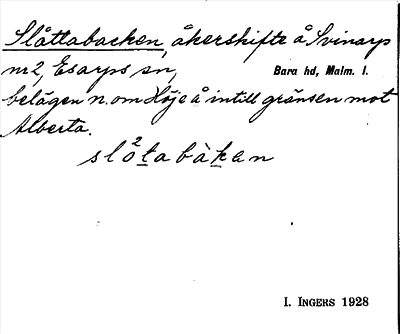 Slåttabacken, åkerskifte å Svinarp
nr 2, Esarps sn,
Bara hd, Malm. l.
belägen n. om Höje å intill gränsen mot
Alberta.
slå²tabàkan
I. INGERS 1928